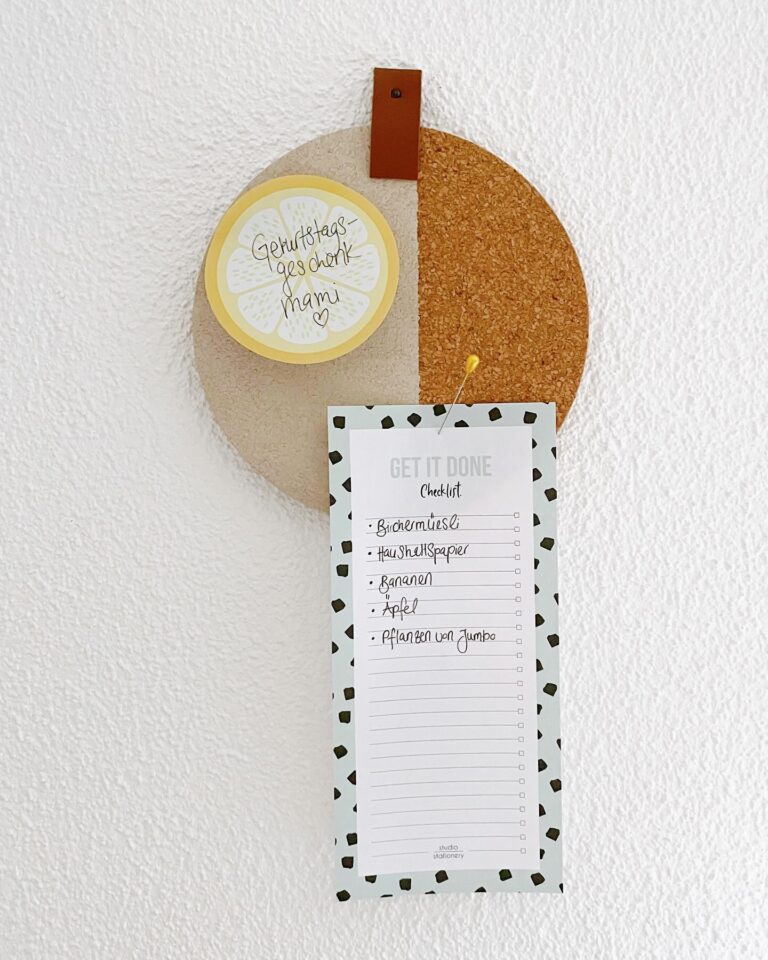 Geburtstags-
geschenk
mami ♡
GET IT DONE
Checklist.
• Birchermüesli
• Haushaltspapier
• Bananen
• Äpfel
• Pflanzen von Jumbo
studio
stationery